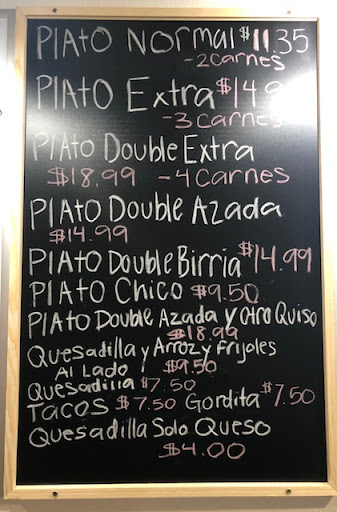 Plato Normal $11.35
-2 carnes
Plato Extra $14.9
-3 carnes
Plato Double Extra
$18.99 -4 carnes
Plato Double Azada
$14.99
Plato Double Birria $14.99
Plato Chico $9.50
Plato Double Azada y Otro Quiso
$18.99
Quesadilla y Arroz y Frijoles
Al Lado $9.50
Quesadilla $7.50
Tacos $7.50 Gordita $7.50
Quesadilla Solo Queso
$4.00